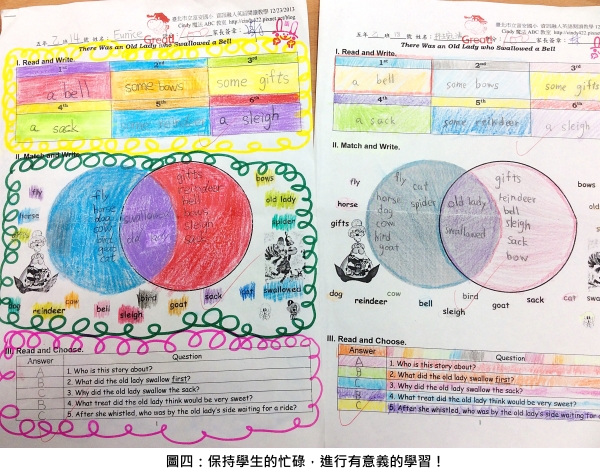 臺北市立富安國小 資訊融入英語閱讀教學 12/23/2013
五年 2 班 14 號 姓名: Eunice
Cindy 魔法 ABC 教室 http://cindy422.pixnet.net/blog
Great!
家長簽章:
There Was an Old Lady who Swallowed a Bell
I. Read and Write.
1st 2nd 3rd
a bell some bows some gifts
4th 5th 6th
a sack some reindeer a sleigh
II. Match and Write.
fly
horse
dog
cow
bird
goat
cat
swallowed
old lady
gifts
reindeer
bell
bows
sleigh
sack
fly
horse
gifts
bows
old lady
spider
dog
reindeer
cow
bell
sleigh
bird
goat
sack
cat
swallowed
III. Read and Choose.
Answer Question
1. Who is this story about?
B 2. What did the old lady swallow first?
3. Why did the old lady swallow the sack?
B 4. What treat did the old lady think would be very sweet?
C 5. After she whistled, who was by the old lady's side waiting for a ride?
臺北市立富安國小 資訊融入英語閱讀教學 12/23/2013
Cindy 魔法 ABC 教室 http://cindy422.pixnet.net/blog
Great!
家長簽章:
There Was an Old Lady who Swallowed a Bell
I. Read and Write.
1st 2nd 3rd
a bell some bows some gifts
4th 5th 6th
a sack some reindeer a sleigh
II. Match and Write.
fly cat
horse spider
dog
cow
bird
goat
old lady
swallowed
gifts
reindeer
bell
sleigh
sack
bow
fly
horse
gifts
bows
old lady
dog
reindeer
cow
bell
sleigh
bird
goat
sack
cat
III. Read and Choose.
Answer Question
A 1. Who is this story about?
B 2. What did the old lady swallow first?
C 3. Why did the old lady swallow the sack?
B 4. What treat did the old lady think would be very sweet?
C 5. After she whistled, who was by the old lady's side waiting for a
1
圖四：保持學生的忙碌，進行有意義的學習！